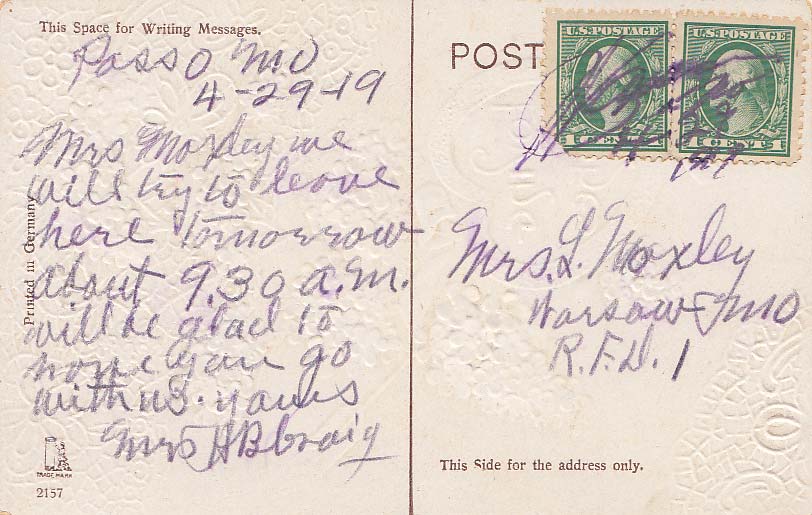 This Space for Writing Messages.
Passo Mo
4-29-19
Mrs Moxley we
will try to leave
here tomorrow
about 9.30 a.m.
will be glad to
have you go
with us. yours
Mrs H B Craig
Printed in Germany
TRADE MARK
2157
POST
U.S. POSTAGE
U.S. POSTAGE
1 CENT
CENT 1
Mrs. L. Moxley
Warsaw Mo
R.F.D. 1
This Side for the address only.